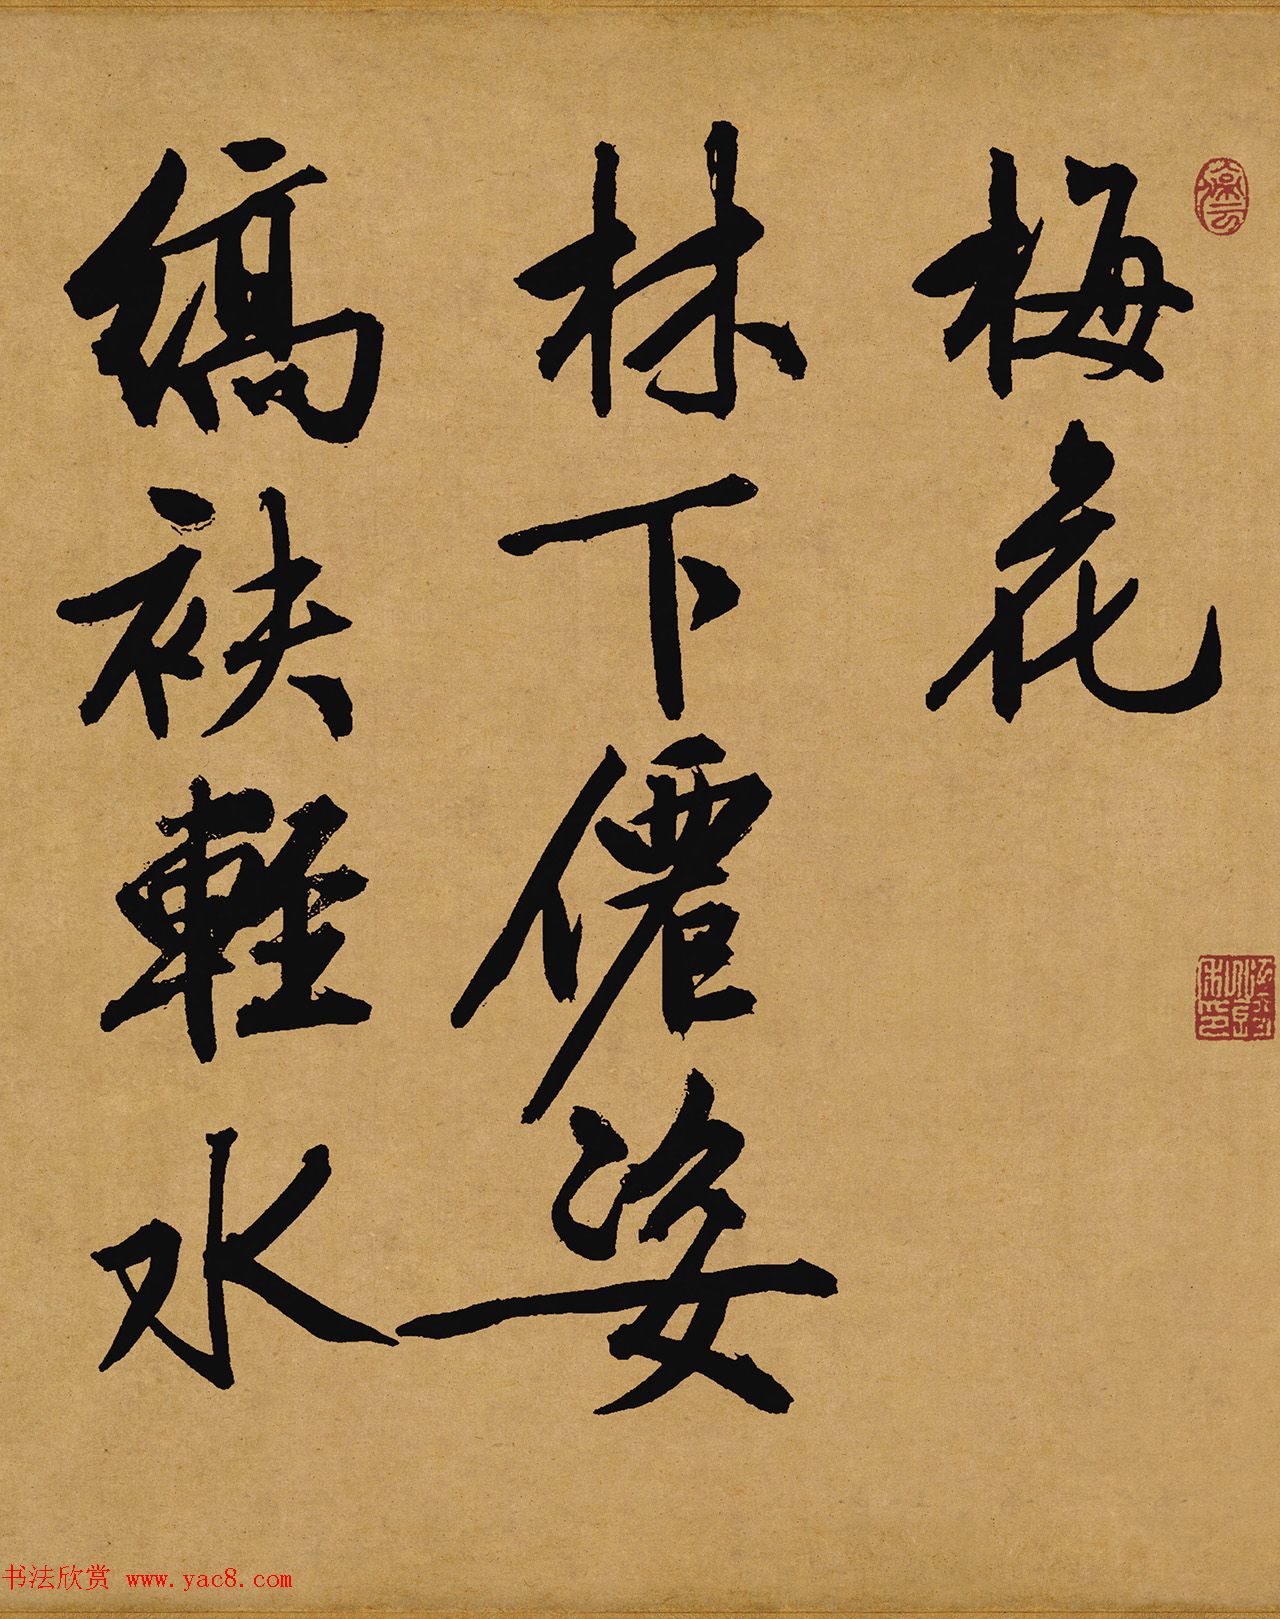 梅花
林下僊姿
縞袂輕水
书法欣赏 www.yac8.com